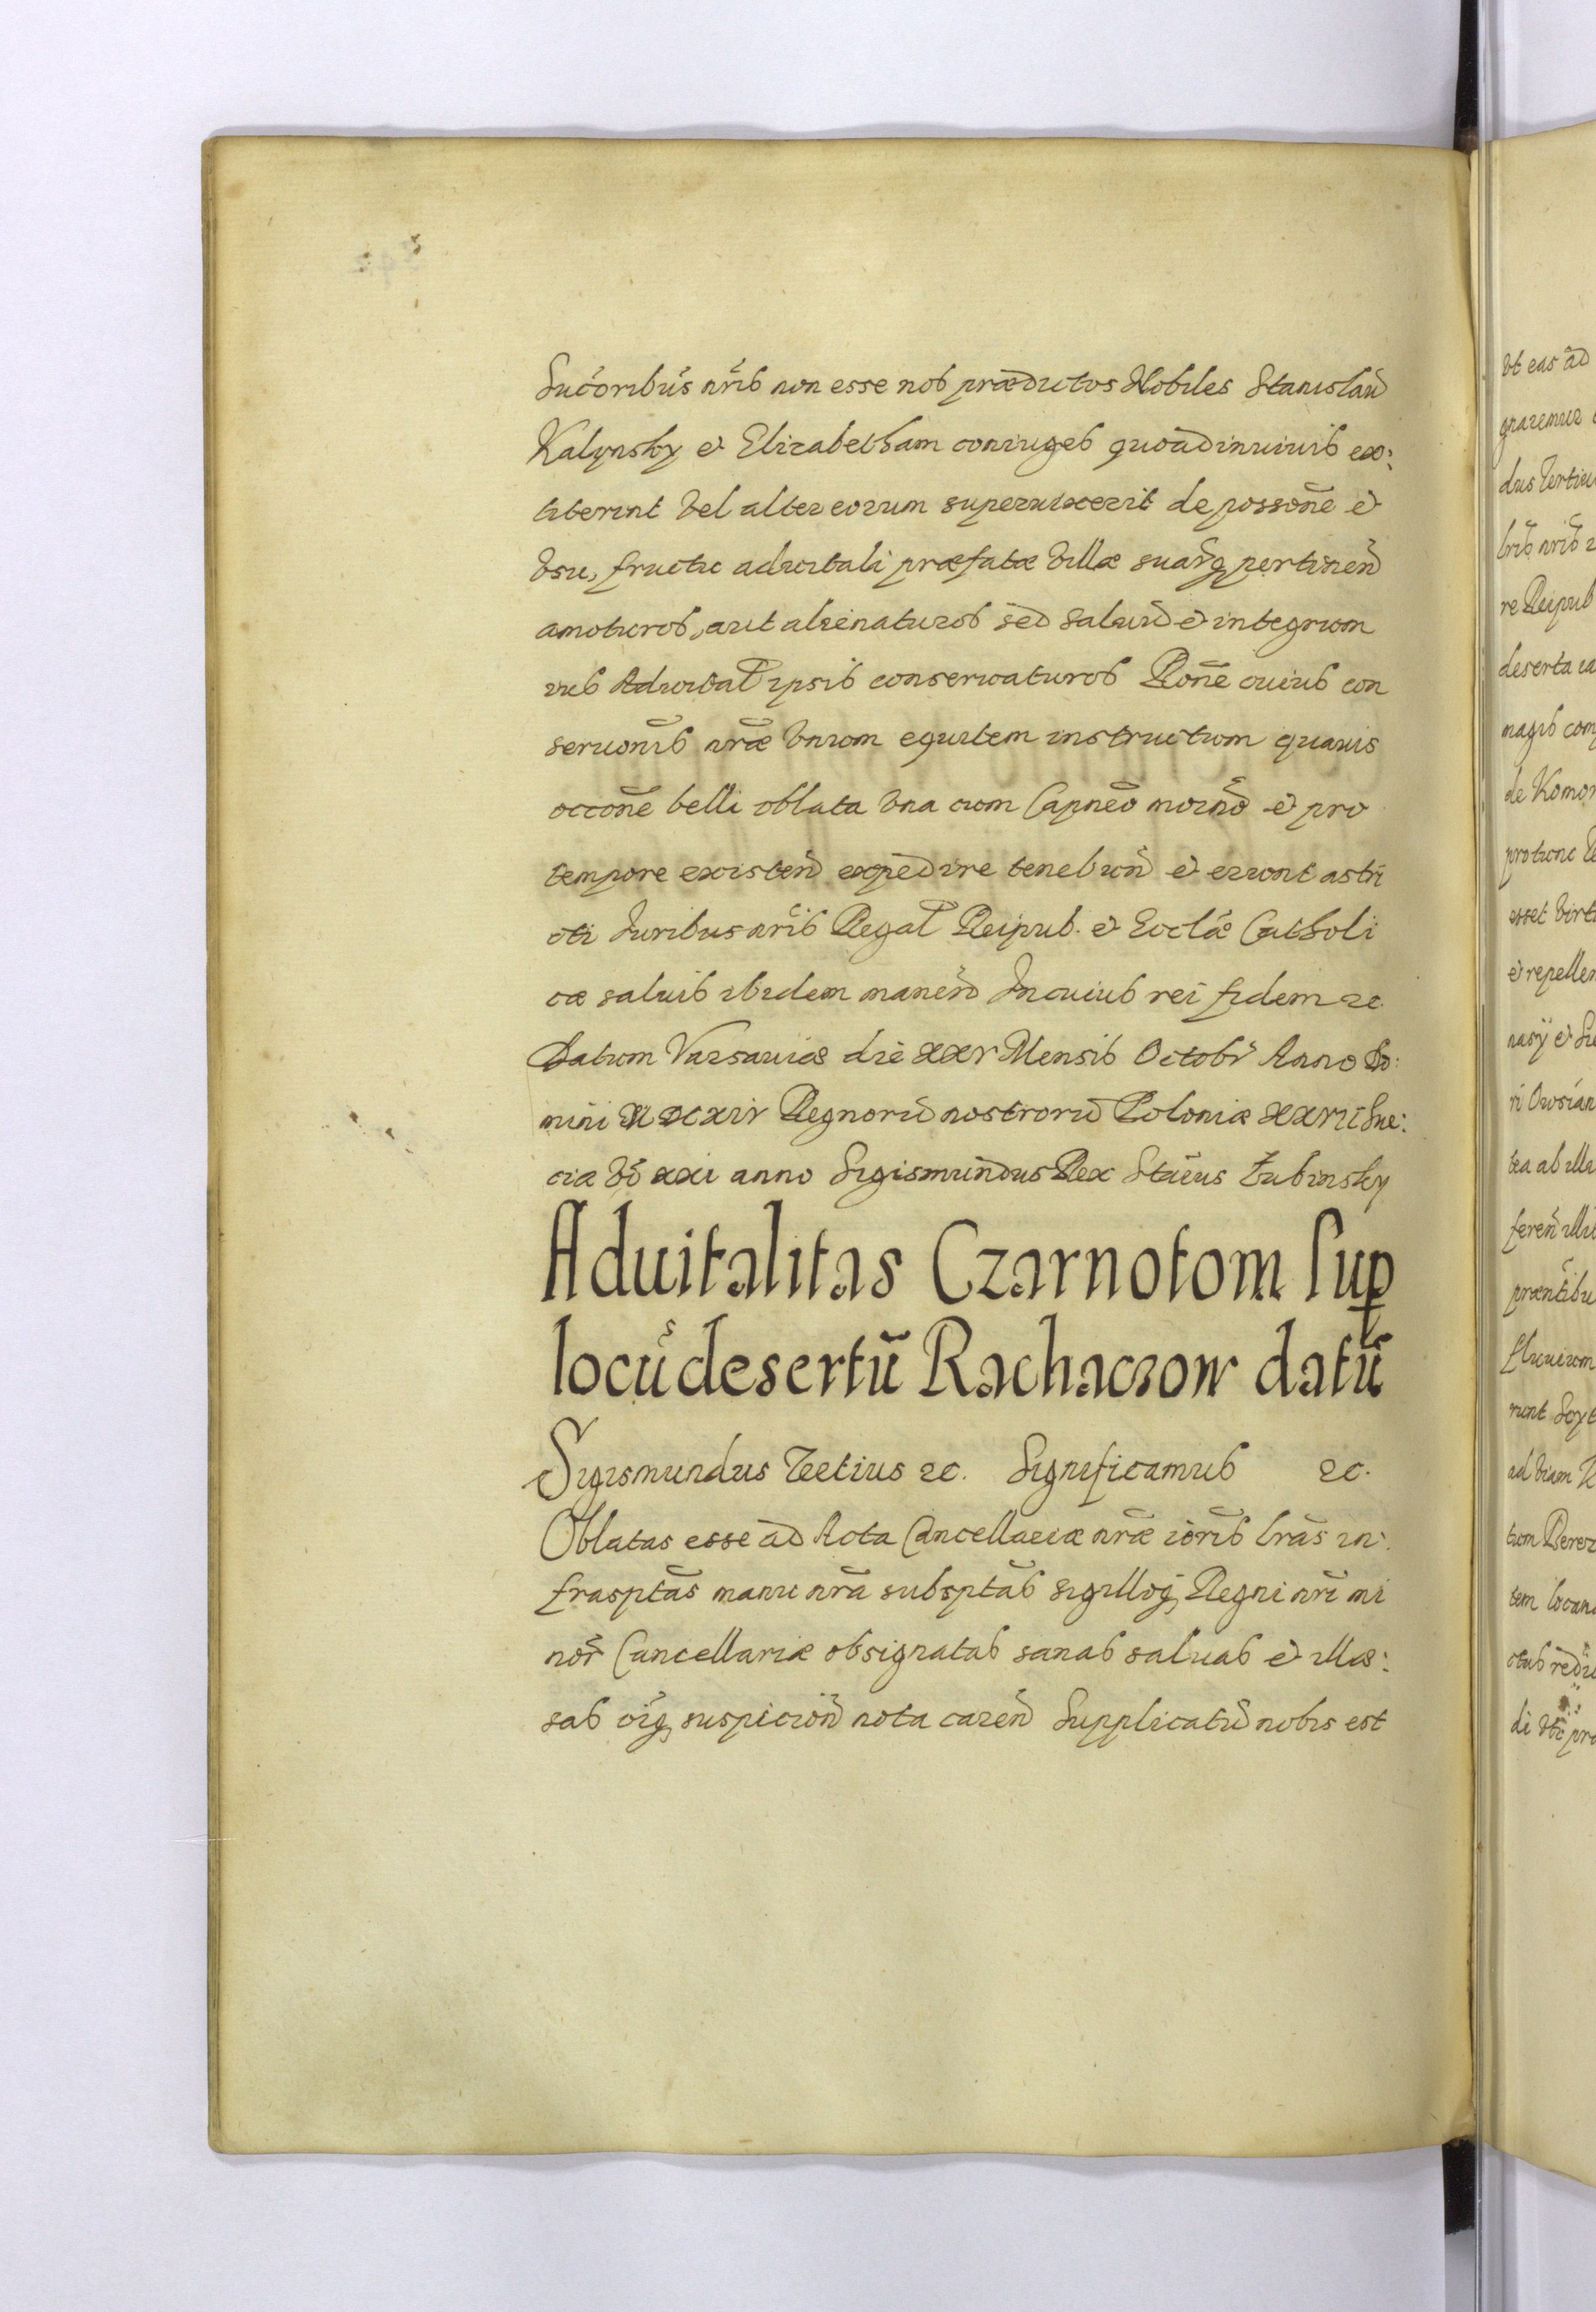 Sucoribus nris non esse nos prædictos Nobiles Stanislaū
Kalynsky et Elizabetham coniuges quoad in viuis ex:
titerint vel alter eorum superuixerit de possone et
vsu, fructu aduitali præfatæ villæ suarq pertinen
amoturos, aut alienaturos sed saluū et integrum
ius Aduital ipsis conseruaturos Rone cuius con
seruonis nræ vnum equitem instructum quauis
occone belli oblata vna cum Capneo moderno et pro
tempore existen expedire tenebun et erunt astri
cti Juribus nris Regal Reipub. et Ecclæ Catholi
cæ saluis ibidem manen In cuius rei fidem &c.
Datum Varsauiæ die XXV Mensis Octobr Anno Do:
mini M DCXIV Regnorū nostrorū Poloniæ XXVII Sue:
ciæ vō XXI anno Sigismundus Rex Staūs Łubinsky
Aduitalitas Czarnotom sup
locū desertū Rachaczow datū
Sigismundus Tertius &c. Significamus &c.
Oblatas esse ad Acta Cancellariæ nræ ioris lras in:
frasptas manu nra subsptas sigilloq Regni nri mi
nor Cancellariæ obsignatas sanas saluas et illæ:
sas oiq suspicion nota caren Supplicatū nobis est
vt eas ad
dus Tertiu
lris nris
re Reipub
deserta
magis com
de Komor
esset virt
et repellen
tea ab illa
feren
prentibu
runt
ad viam
tem locum
di